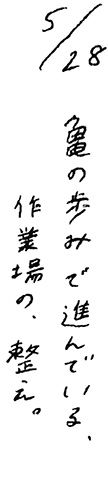 5/28
亀の歩みで進んでいる、
作業場の、整え。